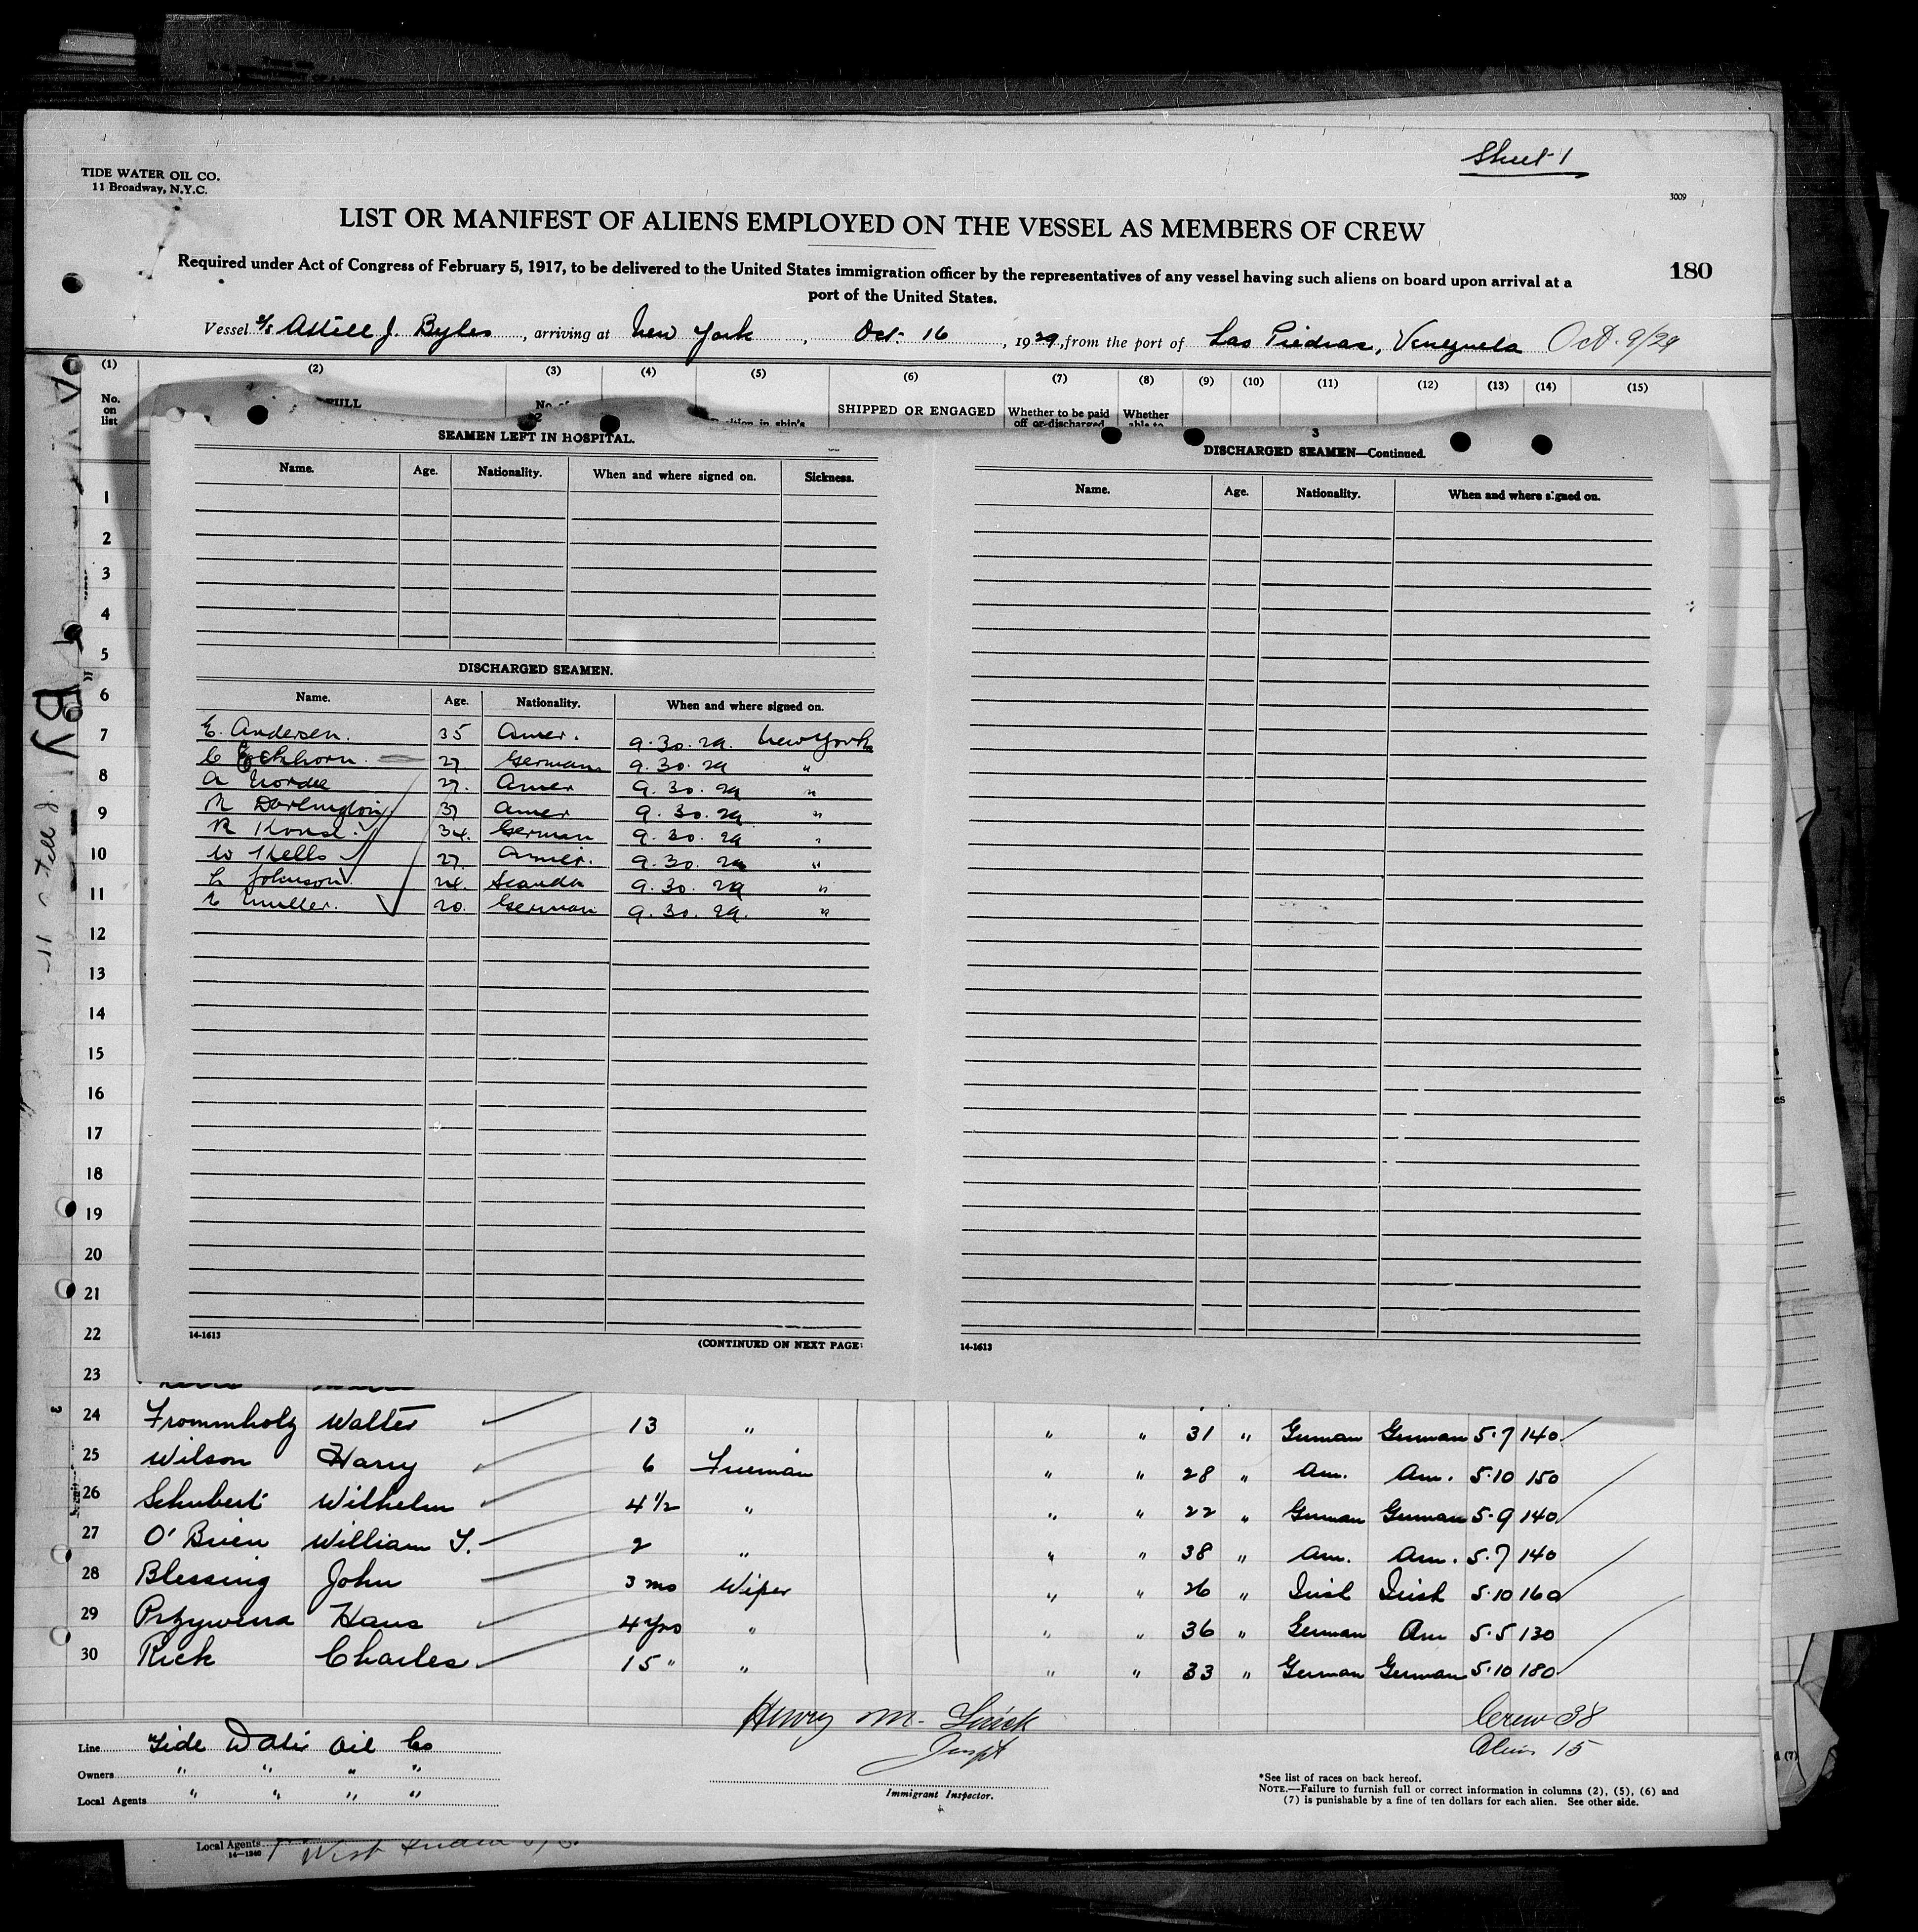 Sheet 1
TIDE WATER OIL CO.
11 Broadway, N.Y.C.
3009
LIST OR MANIFEST OF ALIENS EMPLOYED ON THE VESSEL AS MEMBERS OF CREW
Required under Act of Congress of February 5, 1917, to be delivered to the United States immigration officer by the representatives of any vessel having such aliens on board upon arrival at a
port of the United States.
180
Vessel S/S Astill J. Byles, arriving at New York, Oct. 16, 1929, from the port of Las Piedras, Venezuela Oct. 9/29
(1) (2) (3) (4) (5) (6) (7) (8) (9) (10) (11) (12) (13) (14) (15)
No. on list
FULL
SHIPPED OR ENGAGED
Whether to be paid off or discharged
Whether able to
2
SEAMEN LEFT IN HOSPITAL.
Name. Age. Nationality. When and where signed on. Sickness.
DISCHARGED SEAMEN.
Name. Age. Nationality. When and where signed on.
E. Andersen. 35 Amer. 9.30.29. New York
C Eckhorn. 27 German 9.30.29 "
A Nordee 27. Amer 9.30.29 "
R Darlington 37 Amer 9.30.29 "
R 34. German 9.30.29 "
W Kells 27. Amer. 9.30.29 "
L Johnson 24. Scanda 9.30.29 "
E Muller. 20. German 9.30.29. "
14-1613 (CONTINUED ON NEXT PAGE
3
DISCHARGED SEAMEN—Continued.
Name. Age. Nationality. When and where signed on.
14-1613
1
2
3
4
5
6
7
8
9
10
11
12
13
14
15
16
17
18
19
20
21
22
23
24 Frommholz Walter 13 " " " 31 " German German 5.7 140
25 Wilson Harry 6 Fireman " " 28 " Am. Am. 5.10 150
26 Schubert Wilhelm 4 1/2 " " " 22 " German German 5.9 140
27 O'Brien William T. 2 " " " 38 " Am. Am. 5.7 140
28 Blessing John 3 mo Wiper " " 26 " Irish Irish 5.10 160
29 Przywina Hans 4 yrs " " " 36 " German Am 5.5 130
30 Rick Charles 15 " " " " 33 " German German 5.10 180
Crew 38
Alien 15
Line Tide Water Oil Co
Owners " " " "
Local Agents " " " "
Henry M.
Inspt
Immigrant Inspector.
*See list of races on back hereof.
NOTE.—Failure to furnish full or correct information in columns (2), (5), (6) and
(7) is punishable by a fine of ten dollars for each alien. See other side.
Local Agents
14—1240
West India